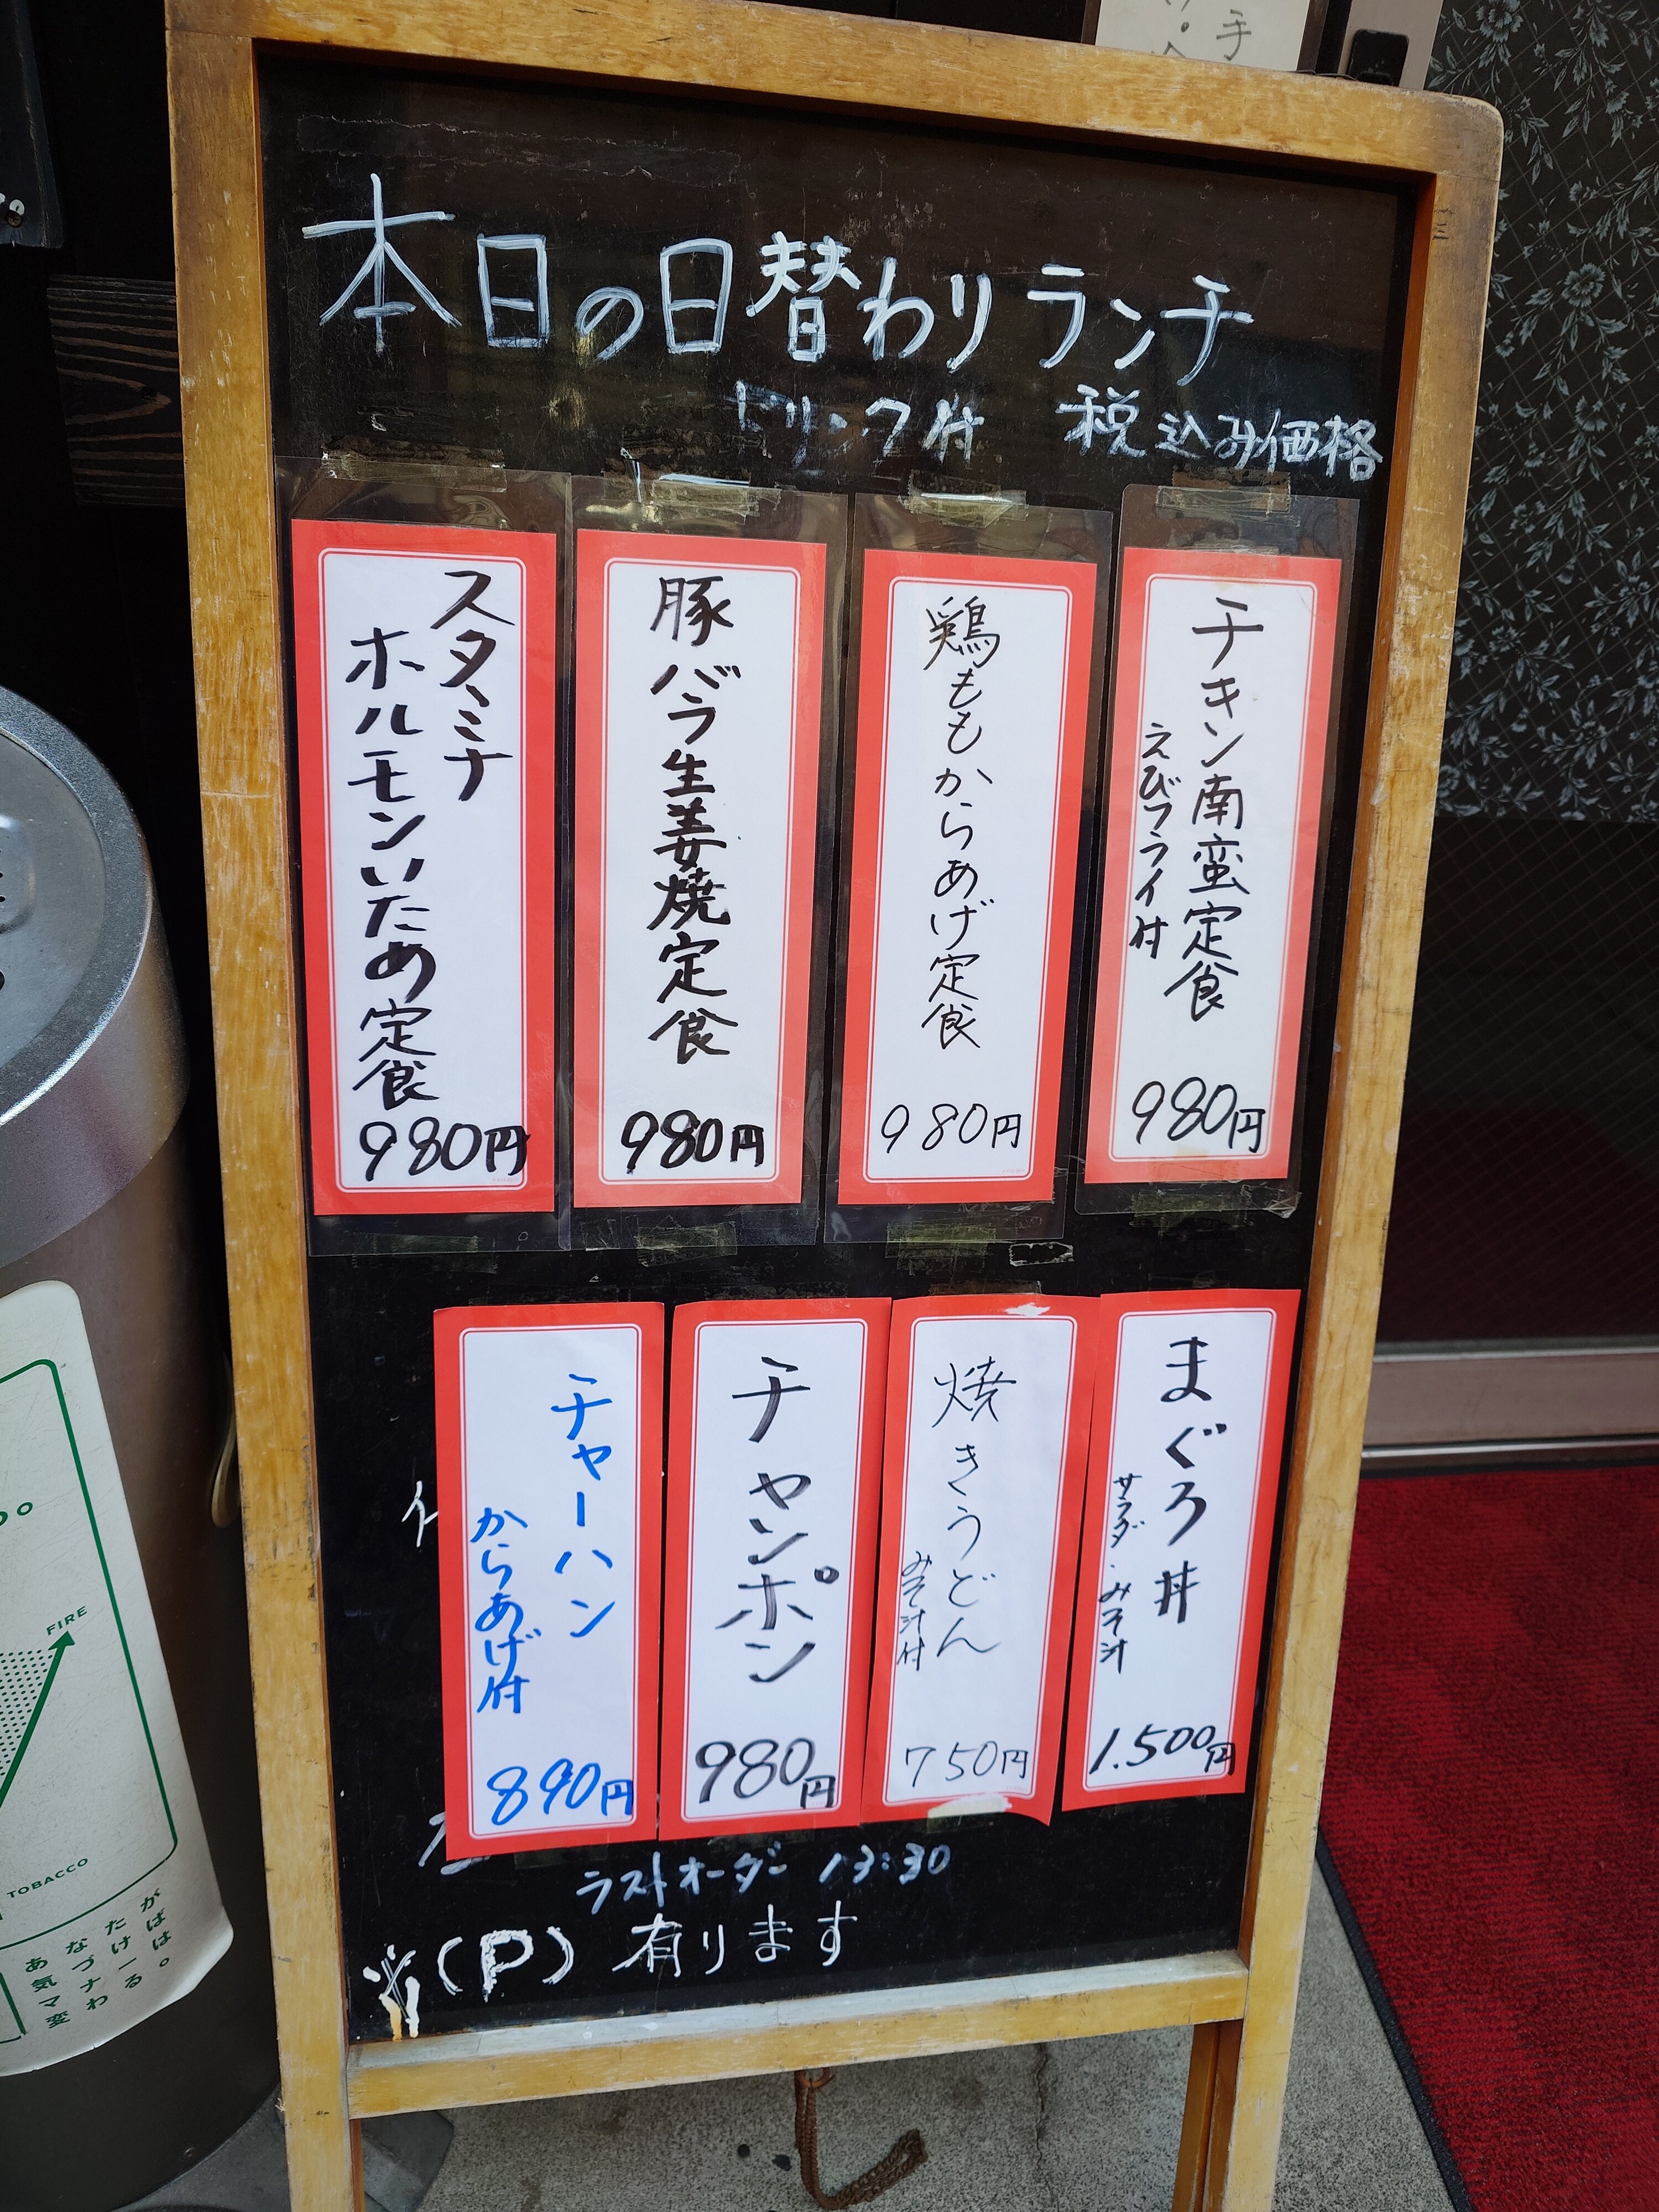 本日の日替わりランチ
ドリンク付 税込み価格
チキン南蛮定食
えびフライ付
980円
鶏ももからあげ定食
980円
豚バラ生姜焼定食
980円
スタミナ
ホルモンいため定食
980円
まぐろ丼
サラダ・みそ汁
1.500円
焼きうどん
みそ汁付
750円
チャンポン
980円
チャーハン
からあげ付
890円
ラストオーダー 13:30
※(P)有ります
手
FIRE
TOBACCO
あなたが
気づけば
マナーは
変わる。